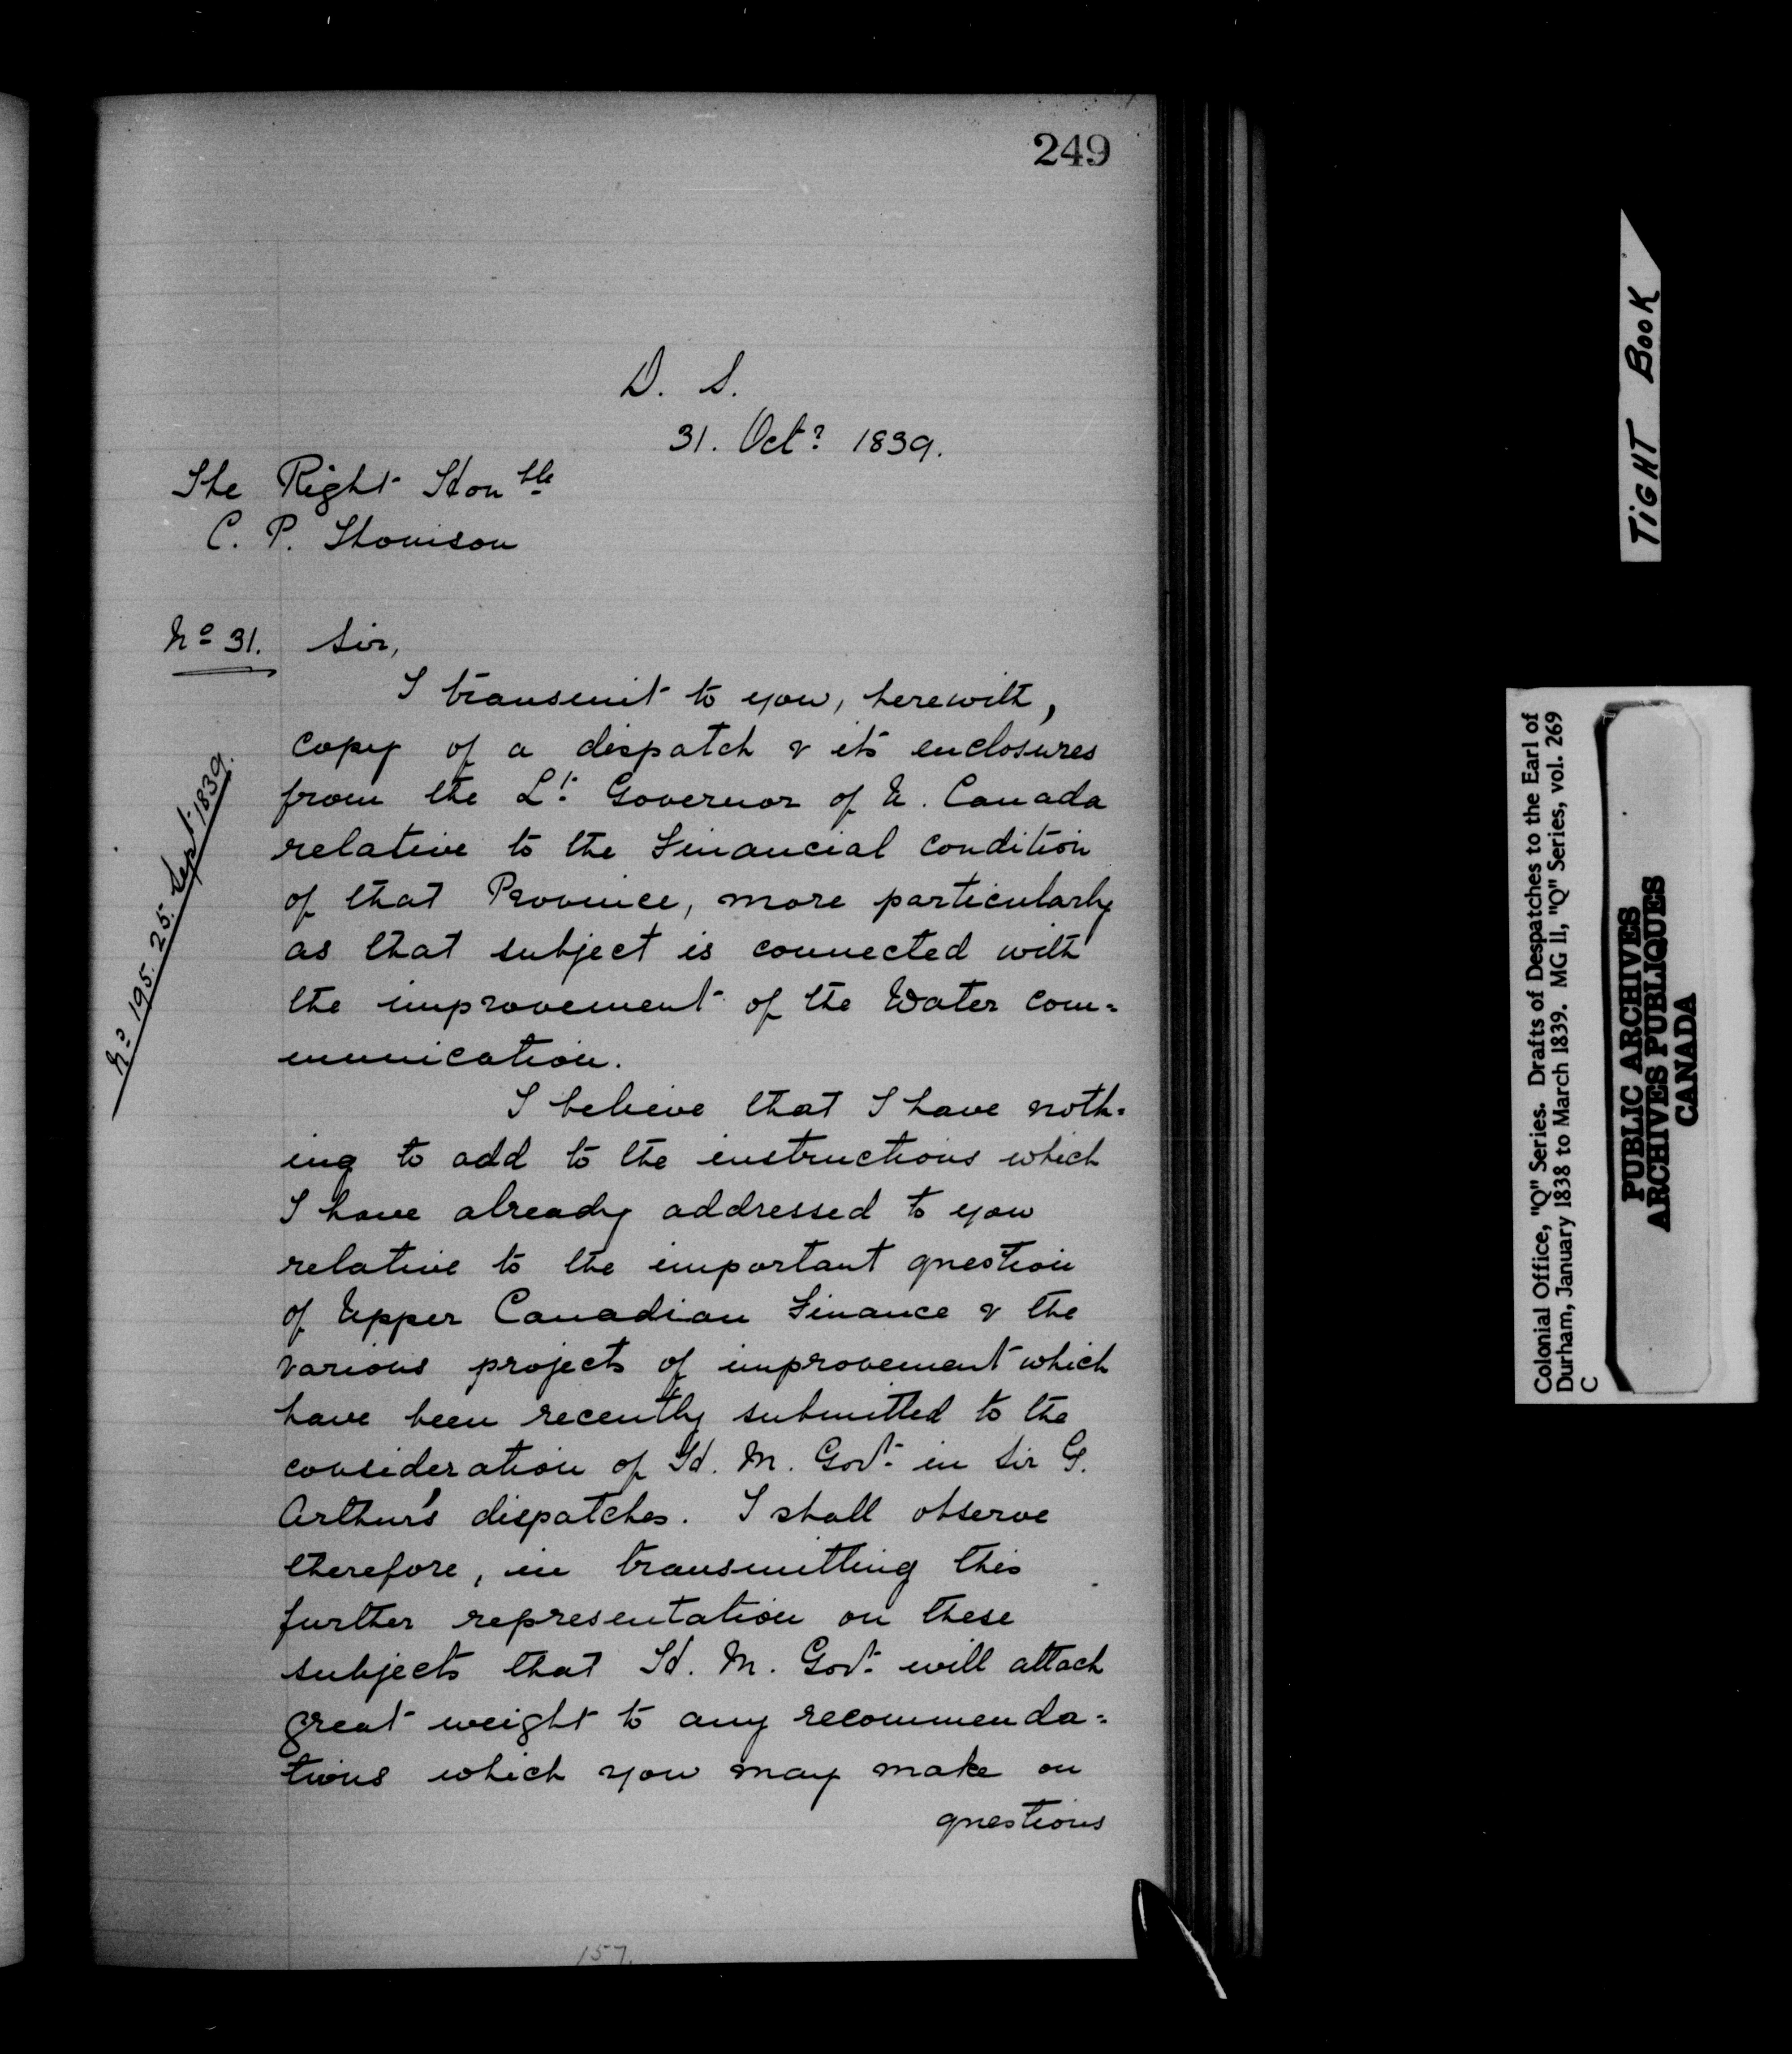 249
D. S.
31. Octr 1839.
The Right Honble
C. P. Thomson
No 31. Sir,
I transmit to you, herewith,
copy of a dispatch & its enclosures
from the Lt. Governor of U. Canada
relative to the Financial condition
of that Province, more particularly
as that subject is connected with
the improvement of the Water com=
munication.
No 195. 25. Sept. 1839.
I believe that I have noth=
ing to add to the instructions which
I have already addressed to you
relative to the important question
of Upper Canadian Finance & the
various projects of improvement which
have been recently submitted to the
consideration of H. M. Govt. in Sir G.
Arthur's dispatches. I shall observe
therefore, in transmitting this
further representation on these
subjects that H. M. Govt. will attach
great weight to any recommenda=
tions which you may make on
questions
157.
TIGHT BOOK
Colonial Office, "Q" Series. Drafts of Despatches to the Earl of
Durham, January 1838 to March 1839. MG 11, "Q" Series, vol. 269
C
PUBLIC ARCHIVES
ARCHIVES PUBLIQUES
CANADA